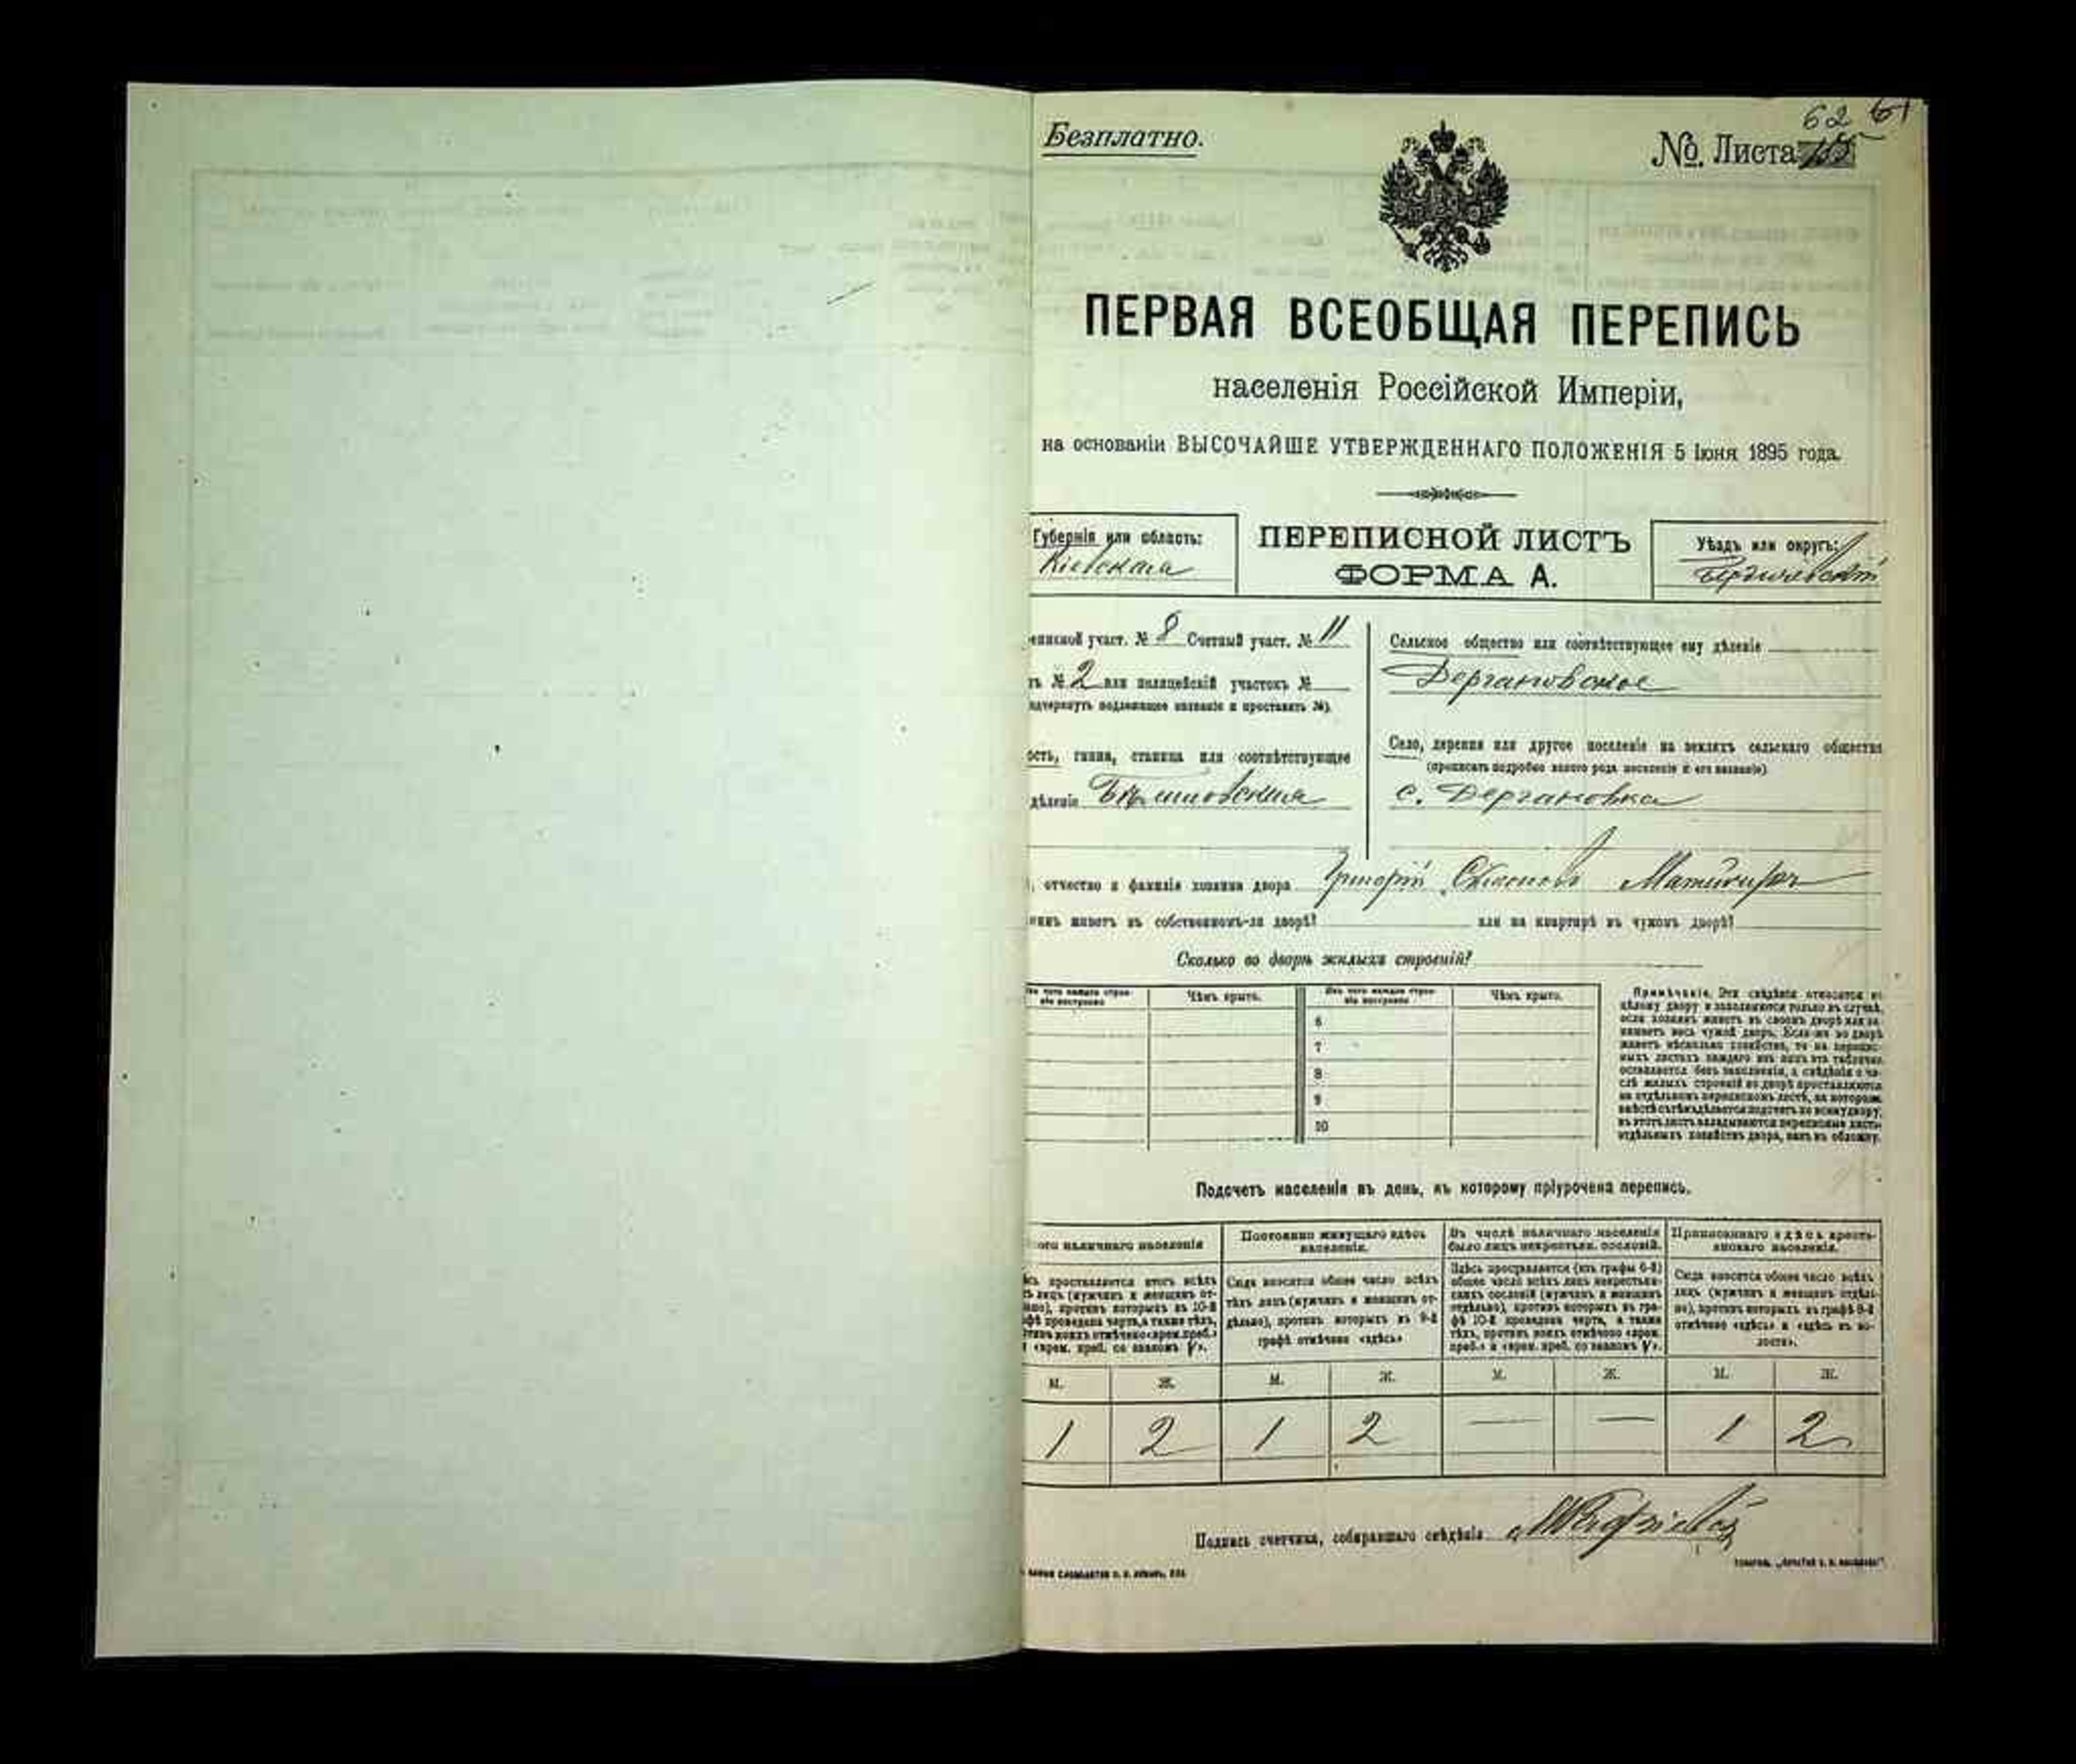 62 61
Безплатно.
№. Листа
ПЕРВАЯ ВСЕОБЩАЯ ПЕРЕПИСЬ
населенія Россійской Имперіи,
на основаніи ВЫСОЧАЙШЕ УТВЕРЖДЕННАГО ПОЛОЖЕНІЯ 5 Іюня 1895 года.
Губернія или область:
Кіевская
ПЕРЕПИСНОЙ ЛИСТЪ
ФОРМА А.
Уѣздъ или округъ:
Бердичевскій
еписной участ. № 8 Счетный участ. № 11
ъ № 2 или полицейскій участокъ №
одчеркнуть подлежащее названіе и проставить №).
ость, гмина, станица или соотвѣтствующее
дѣленіе
Сельское общество или соотвѣтствующее ему дѣленіе
Дергановское
Село, деревня или другое поселеніе на земляхъ сельскаго общества
(прописать подробно какого рода поселеніе и его названіе)
с. Дергановка
, отчество и фамилія хозяина двора Григорій
инъ живетъ въ собственномъ-ли дворѣ? или на квартирѣ въ чужомъ дворѣ?
Сколько во дворѣ жилыхъ строеній?
Изъ чего каждое строеніе построено
Чѣмъ крыто.
Изъ чего каждое строеніе построено
Чѣмъ крыто.
6
7
8
9
10
Примѣчаніе. Эти свѣдѣнія относятся къ
цѣлому двору и заполняются только въ случаѣ,
если хозяинъ живетъ въ своемъ дворѣ или за-
нимаетъ весь чужой дворъ. Если-же во дворѣ
живетъ нѣсколько хозяйствъ, то на перепис-
ныхъ листахъ каждаго изъ нихъ эта табличка
оставляется безъ заполненія, а свѣдѣнія о чи-
слѣ жилыхъ строеній во дворѣ проставляются
на отдѣльномъ переписномъ листѣ, на которомъ
вмѣстѣ съ тѣмъ дѣлается подсчетъ по всему двору;
въ этотъ листъ вкладываются переписные листы
отдѣльныхъ хозяйствъ двора, какъ въ обложку.
Подсчетъ населенія въ день, къ которому пріурочена перепись.
наличнаго населенія
Постоянно живущаго здѣсь
населенія.
Въ числѣ наличнаго населенія
было лицъ некрестьян. сословій.
Приписаннаго здѣсь кресть-
янскаго населенія.
сь проставляется итогъ всѣхъ
ъ лицъ (мужчинъ и женщинъ от-
ьно), противъ которыхъ въ 10-й
фѣ проведена черта, а также тѣхъ,
отивъ коихъ отмѣчено «врем. преб.»
и «врем. преб. со знакомъ V».
Сюда вносится общее число всѣхъ
тѣхъ лицъ (мужчинъ и женщинъ от-
дѣльно), противъ которыхъ въ 9-й
графѣ отмѣчено «здѣсь»
Здѣсь проставляется (изъ графы 6-й)
общее число всѣхъ лицъ некрестьян-
скихъ сословій (мужчинъ и женщинъ
отдѣльно), противъ которыхъ въ гра-
фѣ 10-й проведена черта, а также
тѣхъ, противъ коихъ отмѣчено «врем.
преб.» и «врем. преб. со знакомъ V».
Сюда вносится общее число всѣхъ
лицъ (мужчинъ и женщинъ отдѣль-
но), противъ которыхъ въ графѣ 8-й
отмѣчено «здѣсь» и «здѣсь въ во-
лости».
М. Ж. М. Ж. М. Ж. М. Ж.
1 2 1 2 — — 1 2
Подпись счетчика, собиравшаго свѣдѣнія